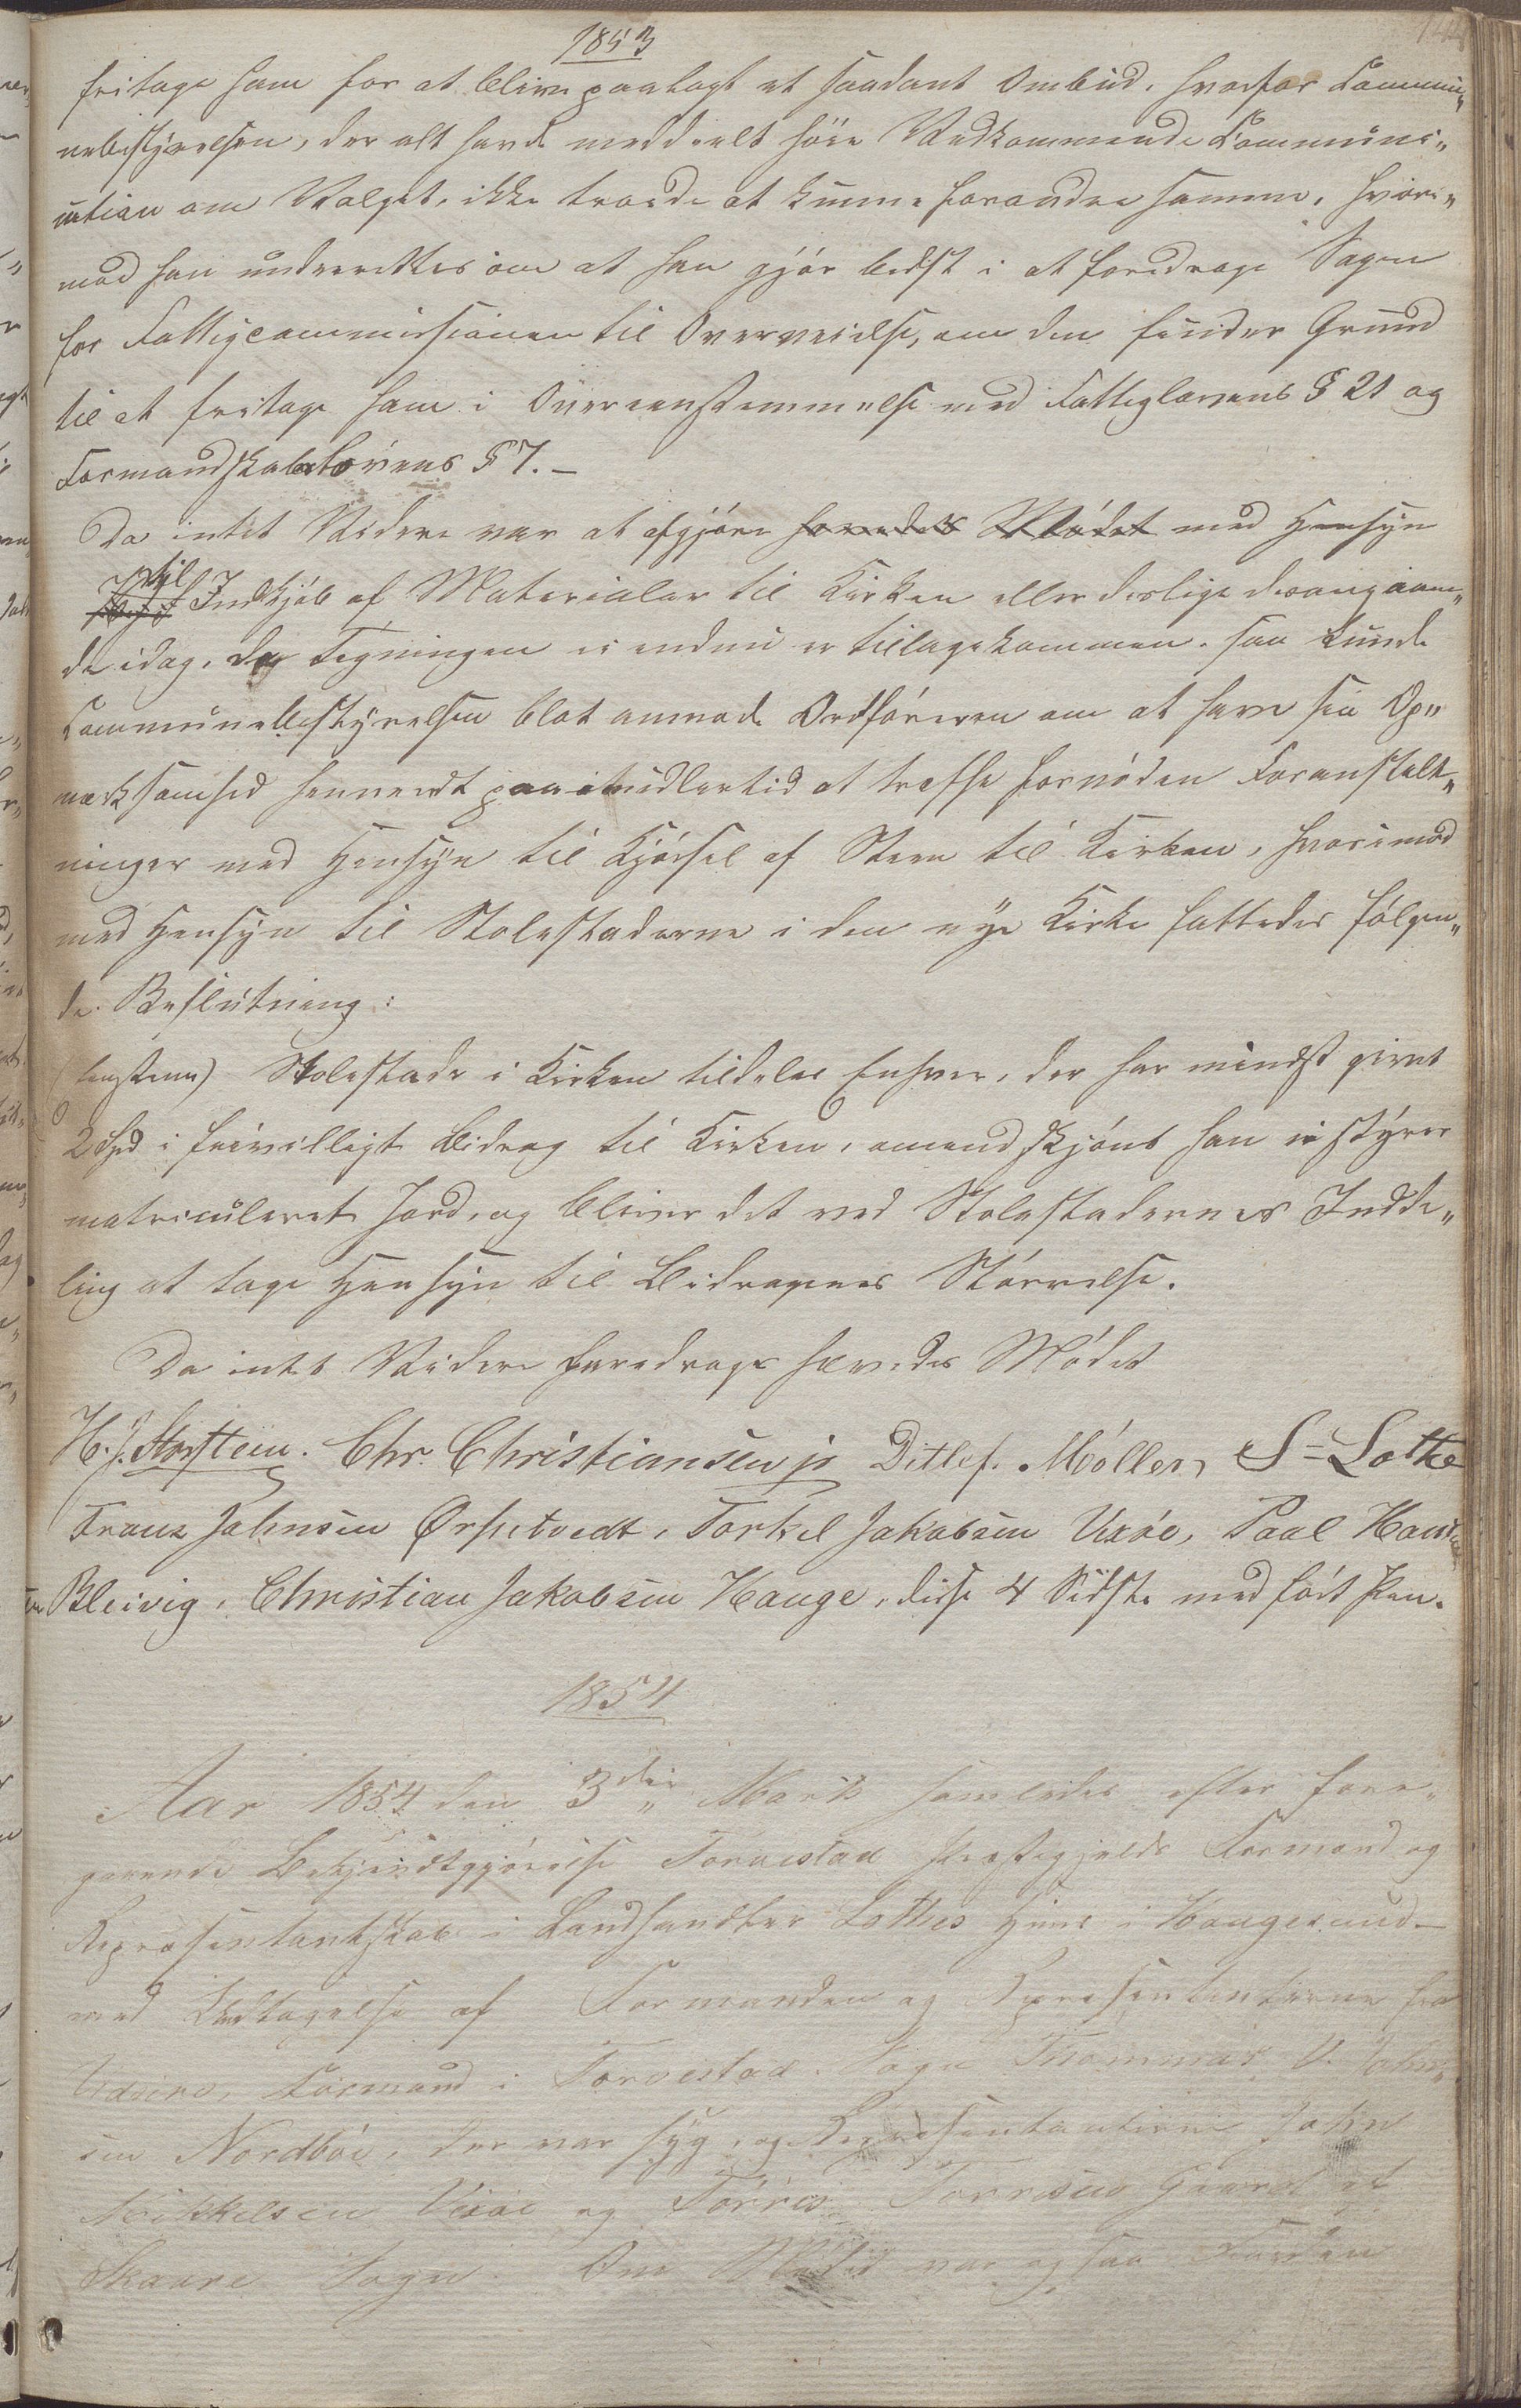 1853
fritage ham for at blive paalagt et saadant Ombud, hvorfor Commu„
nebestyrelsen, der alt havde meddeelt høie Vedkommende Communi„
cation om Valget, ikke troede at kunne forandre samme, hvori„
mod han underrettes om at han gjør bedst i at foredrage Sagen
for Fattigcommissionen til Overveielse, om den finder Grund
til at fritage ham i Overeenstemmelse med Fattiglovens § 21 og
Formandskabslovens § 7. –
Da intet Videre var at afgjøre hævedes Mødet med Hensyn
til Indkjøb af Materialer til Kirken eller deslige desangaaen„
de idag, da Tegningen ei endnu er tilbagekommen, saa kunde
Communebestyrelsen blot anmode Ordføreren om at have sin Op„
mærksomhed henvendt paa imidlertid at træffe fornøden Foranstalt„
ninger med Hensyn til Kjørsel af Steen til Kirken, hvorimod
med Hensyn til Stolestaderne i den nye Kirke fattedes følgen„
de Beslutning:
Stolestade i Kirken tildeles Enhver, der har mindst givet
2 Spd i frivilligt Bidrag til Kirken, omendskjønt han ei styrer
matriculeret Jord, og bliver det ved Stolestadernes Indde„
ling at tage Hensyn til Bidragenes Størrelse.
Da intet Videre foredroges hævedes Mødet
H. J. Stoftein. Chr. Christiansen jr Ditlef. Møller, S = Lothe
Frans Johnsen Ørpetvedt, Torkel Jakobsen Vixøe, Paal Hans
sen Bleivig, Christian Jakobsen Hauge, disse 4 Sidste med ført Pen.
1854
Aar 1854 den 3die Marts samledes efter fore„
gaaende Bekjendtgjørelse Torvestad Præstegjelds Formand og
Repræsentantskab i Landhandler Lothes Huus i Haugesund –
med Undtagelse af Formanden og Repræsentanterne fra
Udsire, Formand i Torvestad Sogn Thommas V. John„
sen Nordbøe, der var syg, og Repræsentanterne John
Mikkelsen Vixøe og Tørres Torresen Gaard af
Skaare Sogn. Om Mødet var ogsaa